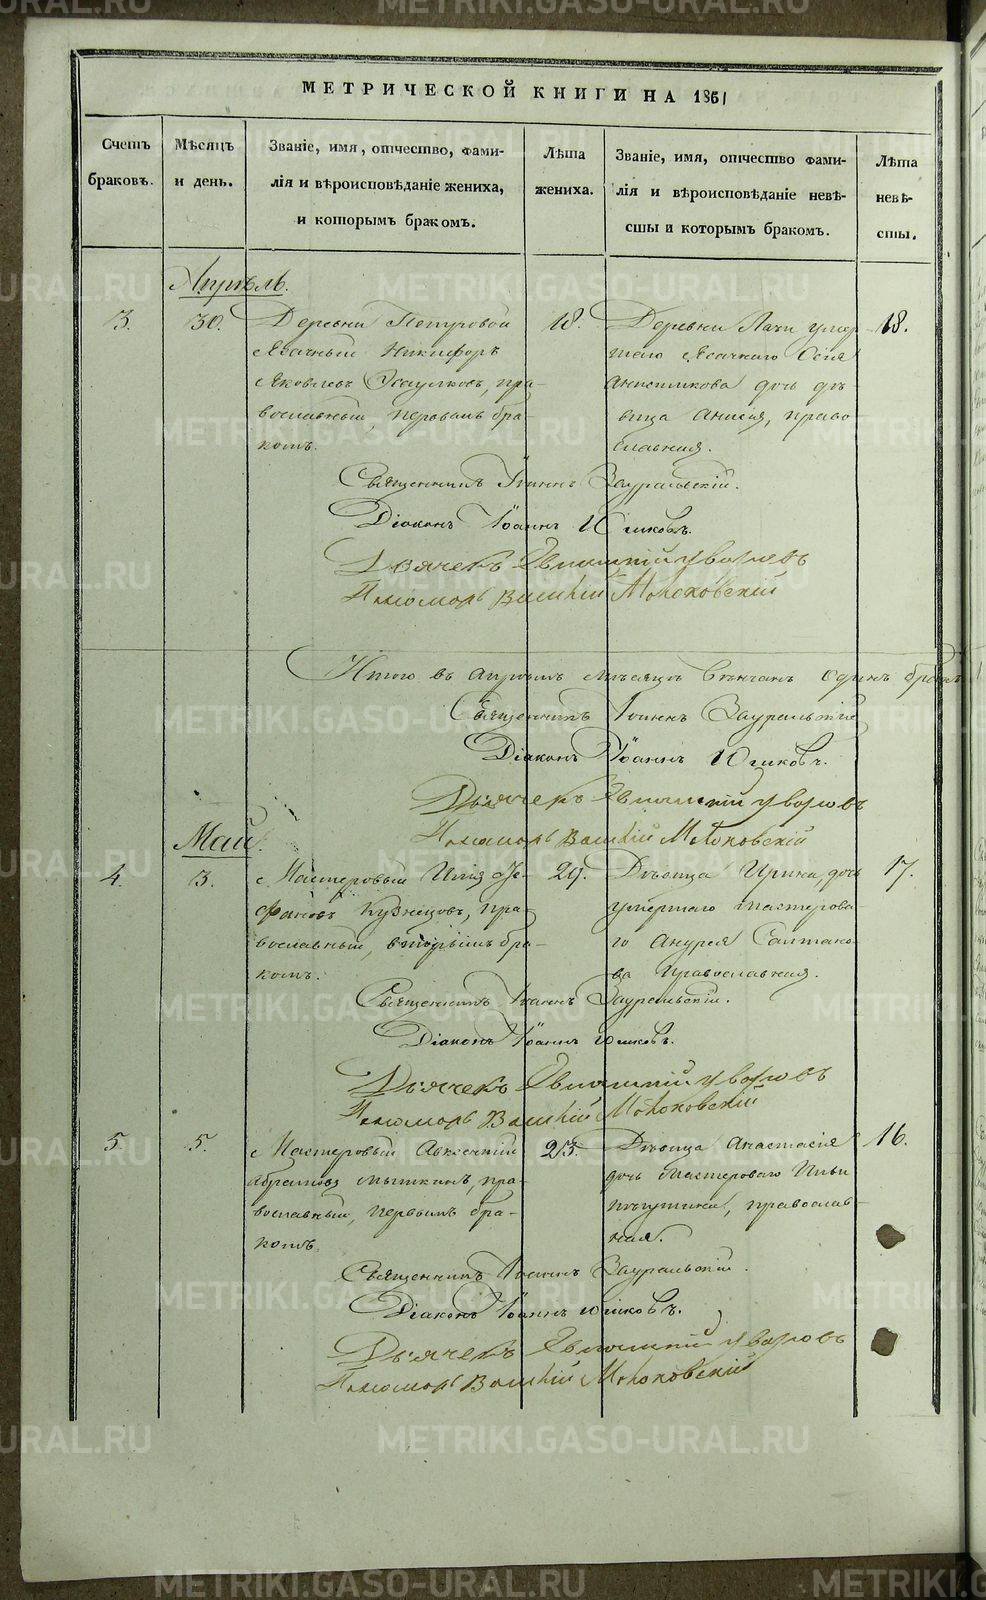 МЕТРИЧЕСКОЙ КНИГИ НА 1861
Счетъ браковъ.
Мѣсяцъ и день.
Званіе, имя, отчество, фами-
лія и вѣроисповѣданіе жениха,
и которымъ бракомъ.
Лѣта жениха.
Званіе, имя, отчество фами-
лія и вѣроисповѣданіе невѣ-
сты и которымъ бракомъ.
Лѣта невѣ-
сты.
Апрѣль.
3.
30.
Деревни
Никифоръ
Яковлевъ пра-
вославный, первымъ бра-
комъ.
18.
Деревни умер-
шаго
дочь дѣ-
вица Анисія, право-
славная.
18.
Священникъ Іоаннъ Зауральскій.
Діаконъ Іоаннъ Юшковъ.
Дьячекъ Уваровъ
Пономарь Молоковскій
Итого въ апрѣлѣ мѣсяцѣ вѣнчанъ одинъ бракъ
Священникъ Іоаннъ Зауральскій
Діаконъ Іоаннъ Юшковъ.
Дьячекъ Уваровъ
Пономарь Молоковскій
Май.
4.
3.
Мастеровый Илія Сте-
фановъ Кузнецовъ, пра-
вославный, вторымъ бра-
комъ.
29.
Дѣвица Ирина, дочь
умершаго мастерова-
го Андрея
православная.
17.
Священникъ Іоаннъ Зауральскій.
Діаконъ Іоаннъ Юшковъ.
Дьячекъ Уваровъ
Пономарь Молоковскій
5.
5.
Мастеровый Авксентій
Абрамовъ пра-
вославный, первымъ бра-
комъ.
23.
Дѣвица Анастасія
дочь мастероваго Ильи
православ-
ная.
16.
Священникъ Іоаннъ Зауральскій.
Діаконъ Іоаннъ Юшковъ.
Дьячекъ Уваровъ
Пономарь Молоковскій
METRIKI.GASO-URAL.RU